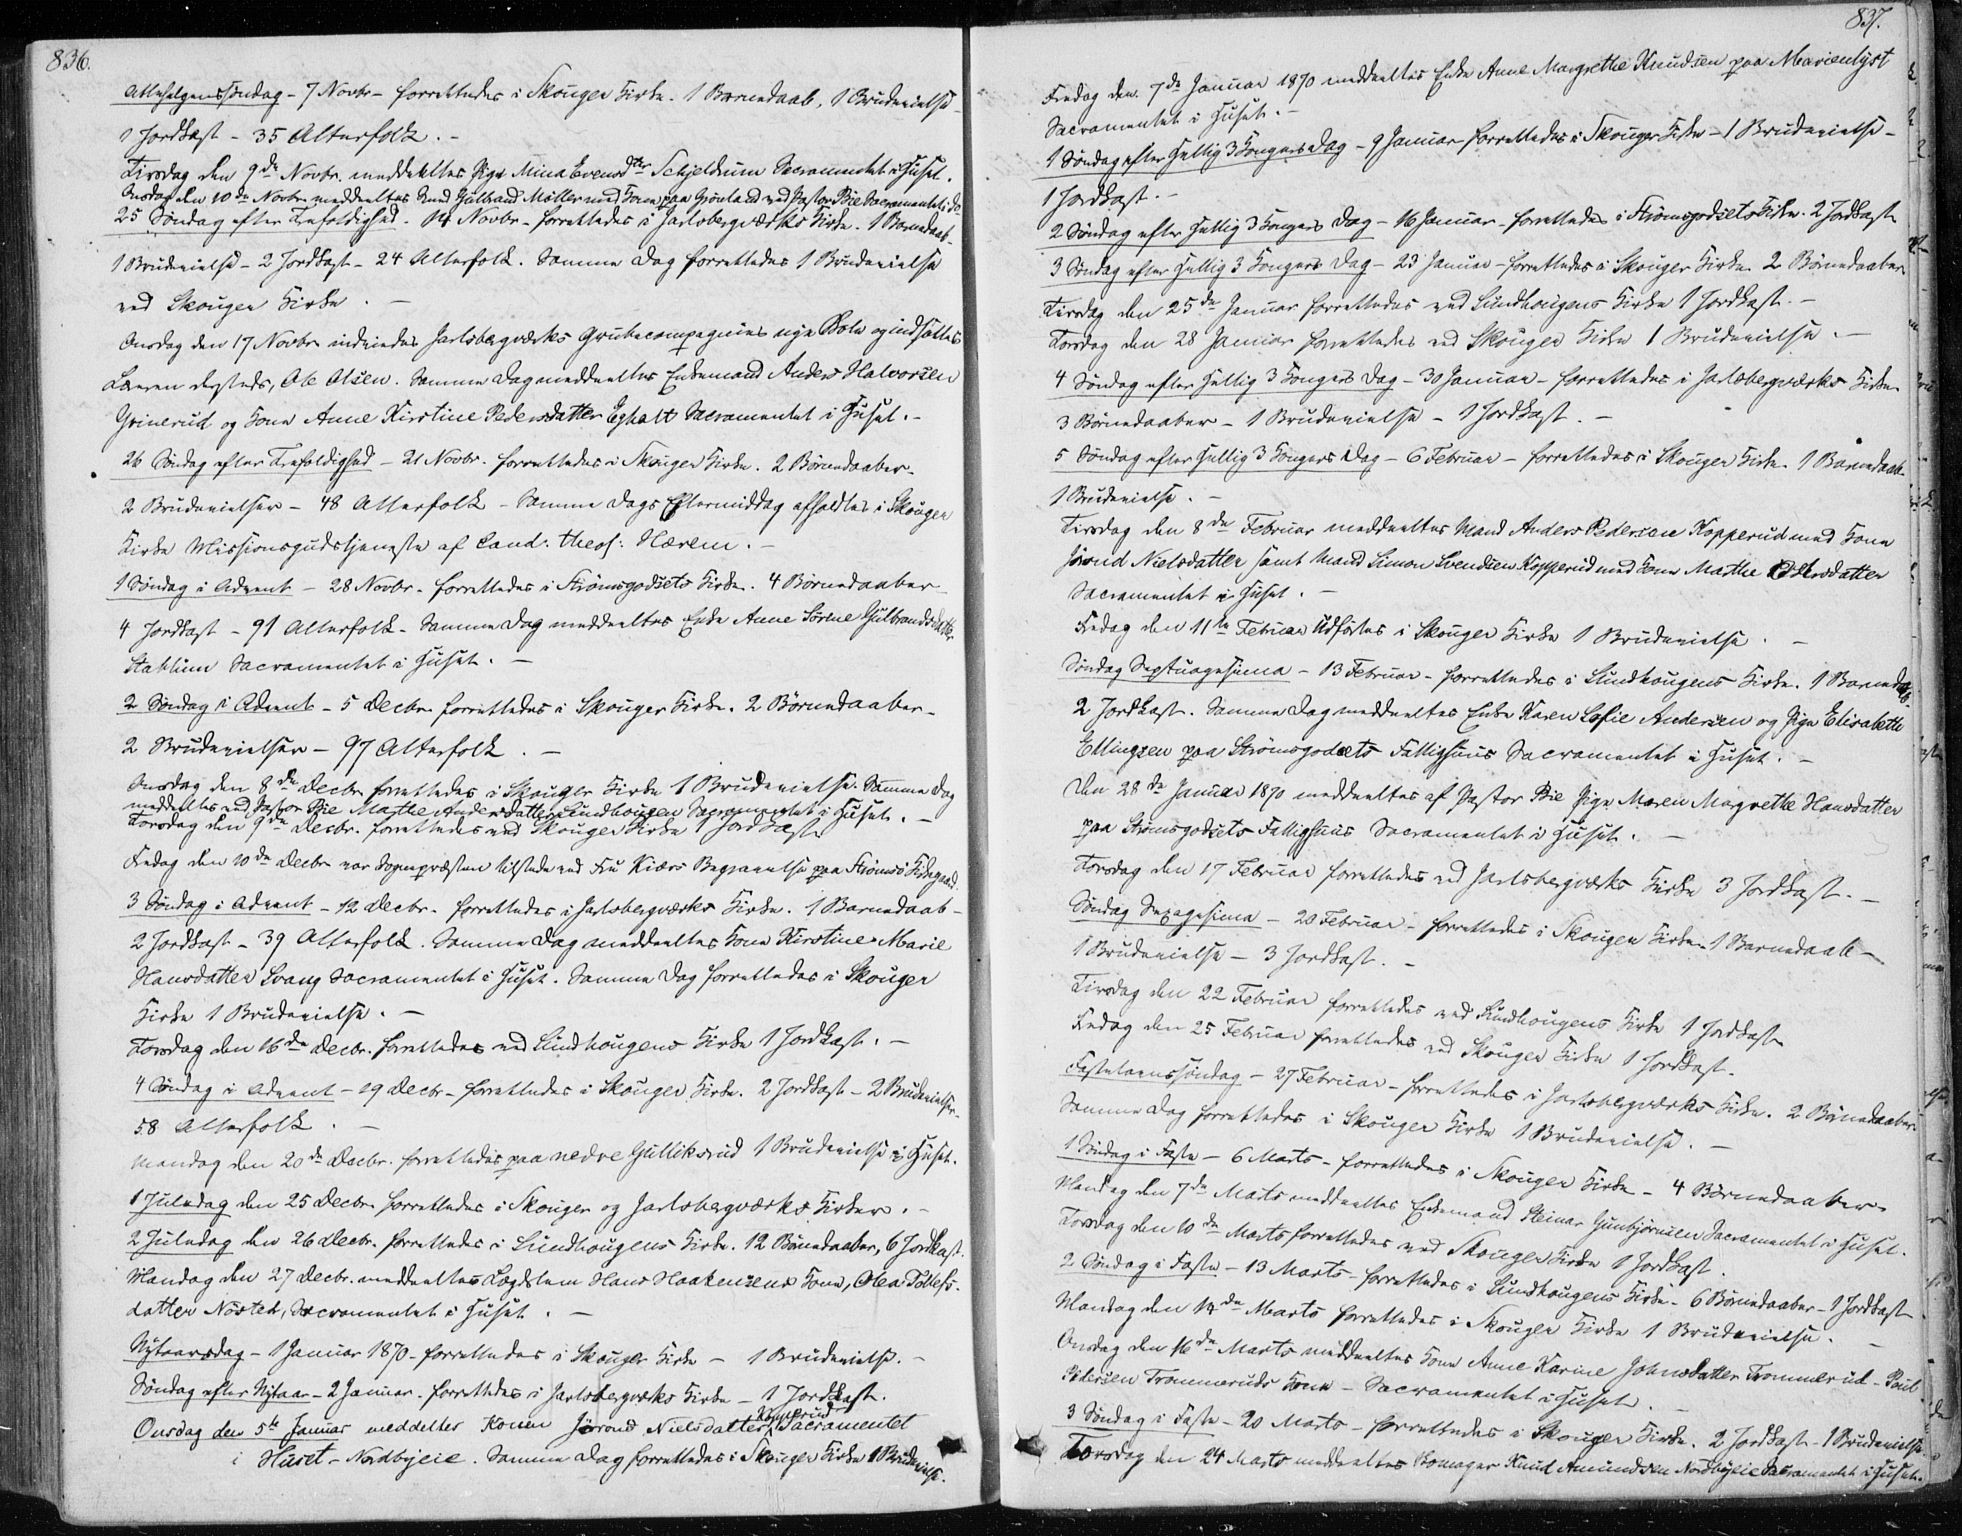 836.
Allehelgenssöndag - 7 Novbr - forrettedes i Skouger Kirke. 1 Barnedaab, 1 Brudevielse -
1 Jordkast - 35 Alterfolk. -
Tirsdag den 9de Novbr. meddeeltes Pige Mina Evensdtr Schjeldrum Sacramentet i Huset.
Onsdag den 10de Novbr meddeeltes Mand Gulbrand Möller med Kone paa Grönland ved Pastor Bie Sacramentet i do
25 Söndag efter Trefoldighed - 14 Novbr - forrettedes i Jarlsbergværks Kirke. 1 Barnedaab -
1 Brudevielse - 2 Jordkast - 24 Alterfolk. Samme Dag forrettedes 1 Brudevielse
ved Skouger Kirke. -
Onsdag den 17 Novbr indviedes Jarlsbergværks Grubecompagnies nye Skole og indsattes
Læreren dersteds, Ole Olsen. Samme Dag meddeeltes Enkemand Anders Halvorsen
Grinerud og Kone Anne Kirstine Pedersdatter Egholt Sacramentet i Huset. -
26 Söndag efter Trefoldighed - 21 Novbr. forrettedes i Skouger Kirke. 2 Börnedaaber -
2 Brudevielser - 48 Alterfolk - Samme Dags Eftermiddag afholdtes i Skouger
Kirke Missionsgudstjeneste af Cand: theol: Hærem. -
1 Söndag i Advent - 28 Novbr. forrettedes i Strömsgodsets Kirke. 4 Börnedaaber -
4 Jordkast - 91 Alterfolk - Samme Dag meddeeltes Enke Anne Sörine Gulbrandsdatter
Stahlum Sacramentet i Huset. -
2 Söndag i Advent - 5 Decbr forrettedes i Skouger Kirke. 2 Börnedaaber -
2 Brudevielser - 97 Alterfolk. -
Onsdag den 8de Decbr forrettedes i Skouger Kirke 1 Brudevielse. Samme Dag
meddeeltes ved Pastor Bie Mathe Andersdatter Lundhougen Sacramentet i Huset. -
Torsdag den 9de Decbr. forrettedes ved Skouger Kirke 1 Jordkast
Fredag den 10de Decbr var Sognepræsten tilstede ved Fru Kiærs Begravelse paa Strömsö Kirkegaard.
3 Söndag i Advent - 12 Decbr. forrettedes i Jarlsbergværks Kirke. 1 Barnedaab -
2 Jordkast - 39 Alterfolk. Samme Dag meddeeltes Kone Kirstine Marie
Hansdatter Svang Sacramentet i Huset. Samme Dag forrettedes i Skouger
Kirke 1 Brudevielse. -
Torsdag den 16de Decbr. forrettedes ved Lundhougens Kirke 1 Jordkast. -
4 Söndag i Advent - 19 Decbr - forrettedes i Skouger Kirke. 2 Jordkast - 2 Brudevielser -
58 Alterfolk. -
Mandag den 20de Decbr. forrettedes paa nedre Gulliksrud 1 Brudevielse i Huset.
1 Juledag den 25 Decbr forrettedes i Skouger og Jarlsbergværks Kirker. -
2 Juledag den 26 Decbr. forrettedes i Lundhougens Kirke. 12 Börnedaaber, 6 Jordkast.
Mandag den 27 Decbr. meddeeltes Lægdslem Hans Haakensens Kone, Olea Tollefs-
datter Nöstet, Sacramentet i Huset. -
Nytaarsdag - 1 Januar 1870 - forrettedes i Skouger Kirke - 1 Brudevielse. -
Söndag efter Nytaar - 2 Januar. forrettedes i Jarlsbergværks Kirke - 1 Jordkast.
Onsdag den 5te Januar meddeltes Konen Jörand Nielsdatter Kopperud Sacramentet
i Huset - Nordbyeie. Samme Dag forrettedes i Skouger Kirke 1 Brudevielse.
837.
Fredag den 7de Januar 1870 meddeeltes Enke Anne Margrethe Knudsen paa Marienlyst
Sacramentet i Huset. -
1 Söndag efter Hellig 3 Kongers Dag - 9 Januar forrettedes i Skouger Kirke - 1 Brudevielse -
1 Jordkast. -
2 Söndag efter Hellig 3 Kongers Dag - 16 Januar - forrettedes i Strömsgodsets Kirke. 2 Jordkast
3 Söndag efter Hellig 3 Kongers Dag - 23 Januar - forrettedes i Skouger Kirke 2 Börnedaaber.
Tirsdag den 25de Januar forrettedes ved Lundhougens Kirke 1 Jordkast. -
Torsdag den 28 Januar forrettedes ved Skouger Kirke 1 Brudevielse. -
4 Söndag efter Hellig 3 Kongers Dag - 30 Januar - forrettedes i Jarlsbergværks Kirke
3 Börnedaaber - 1 Brudevielse - 1 Jordkast. -
5 Söndag efter Hellig 3 Kongers Dag - 6 Februar - forrettedes i Skouger Kirke. 1 Barnedaab -
1 Brudevielse. -
Tirsdag den 8de Februar meddeeltes Mand Anders Pedersen Kopperud med Kone
Jörand Nielsdatter samt Mand Simon Svendsen Kopperud med Kone Mathe Pedersdatter
Sacramentet i Huset. -
Fredag den 11te Februar udförtes i Skouger Kirke 1 Brudevielse. -
Söndag Septuagesima - 13 Februar - forrettedes i Lundhougens Kirke. 1 Barnedaab.
2 Jordkast. Samme Dag meddeeltes Enke Karen Sofie Andersen og Pige Elisabeth
Ellingsen paa Strömsgodsets Fattighuus Sacramentet i Huset. -
Den 28de Januar 1870 meddeeltes af Pastor Bie Pige Maren Margrethe Hansdatter
paa Strömsgodsets Fattighuus Sacramentet i Huset. -
Torsdag den 17 Februar forrettedes ved Jarlsbergværks Kirke 3 Jordkast. -
Söndag Sexagesima - 20 Februar - forrettedes i Skouger Kirke - 1 Barnedaab -
1 Brudevielse - 3 Jordkast. -
Tirsdag den 22 Februar forrettedes ved Lundhougens Kirke 1 Jordkast
Fredag den 25 Februar forrettedes ved Skouger Kirke 1 Jordkast.
Fastelavnssöndag - 27 Februar - forrettedes i Jarlsbergværks Kirke. 2 Börnedaaber.
Samme Dag forrettedes i Skouger Kirke 1 Brudevielse. -
1 Söndag i Faste - 6 Marts - forrettedes i Skouger Kirke - 4 Börnedaaber.
Mandag den 7de Marts meddeeltes Enkemand Steinar Gunbjörnsen Sacramentet i Huset.
Torsdag den 10de Marts forrettedes ved Skouger Kirke 1 Jordkast.
2 Söndag i Faste - 13 Marts - forrettedes i Lundhougens Kirke - 6 Börnedaaber - 1 Jordkast
Mandag den 14de Marts forrettedes i Skouger Kirke 1 Brudevielse. -
Onsdag den 16de Marts meddeeltes Kone Anne Karine Johnsdatter Trommerud - Poul
Pedersen Trommeruds Kone - Sacramentet i Huset. -
3 Söndag i Faste - 20 Marts - forrettedes i Skouger Kirke. 2 Jordkast - 1 Brudevielse
Torsdag den 24 Marts meddeeltes Skomager Knud Amundsen Nordbyeie Sacramentet i Huset.